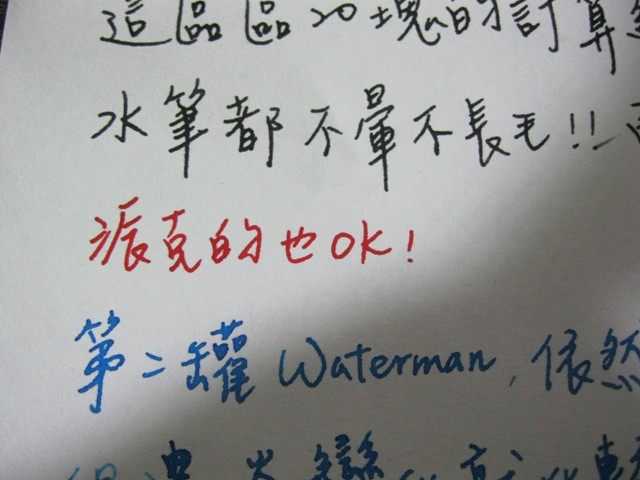 這區區20塊的計算
水筆都不暈不長毛!!
派克的也OK!
第二罐 Waterman, 依然